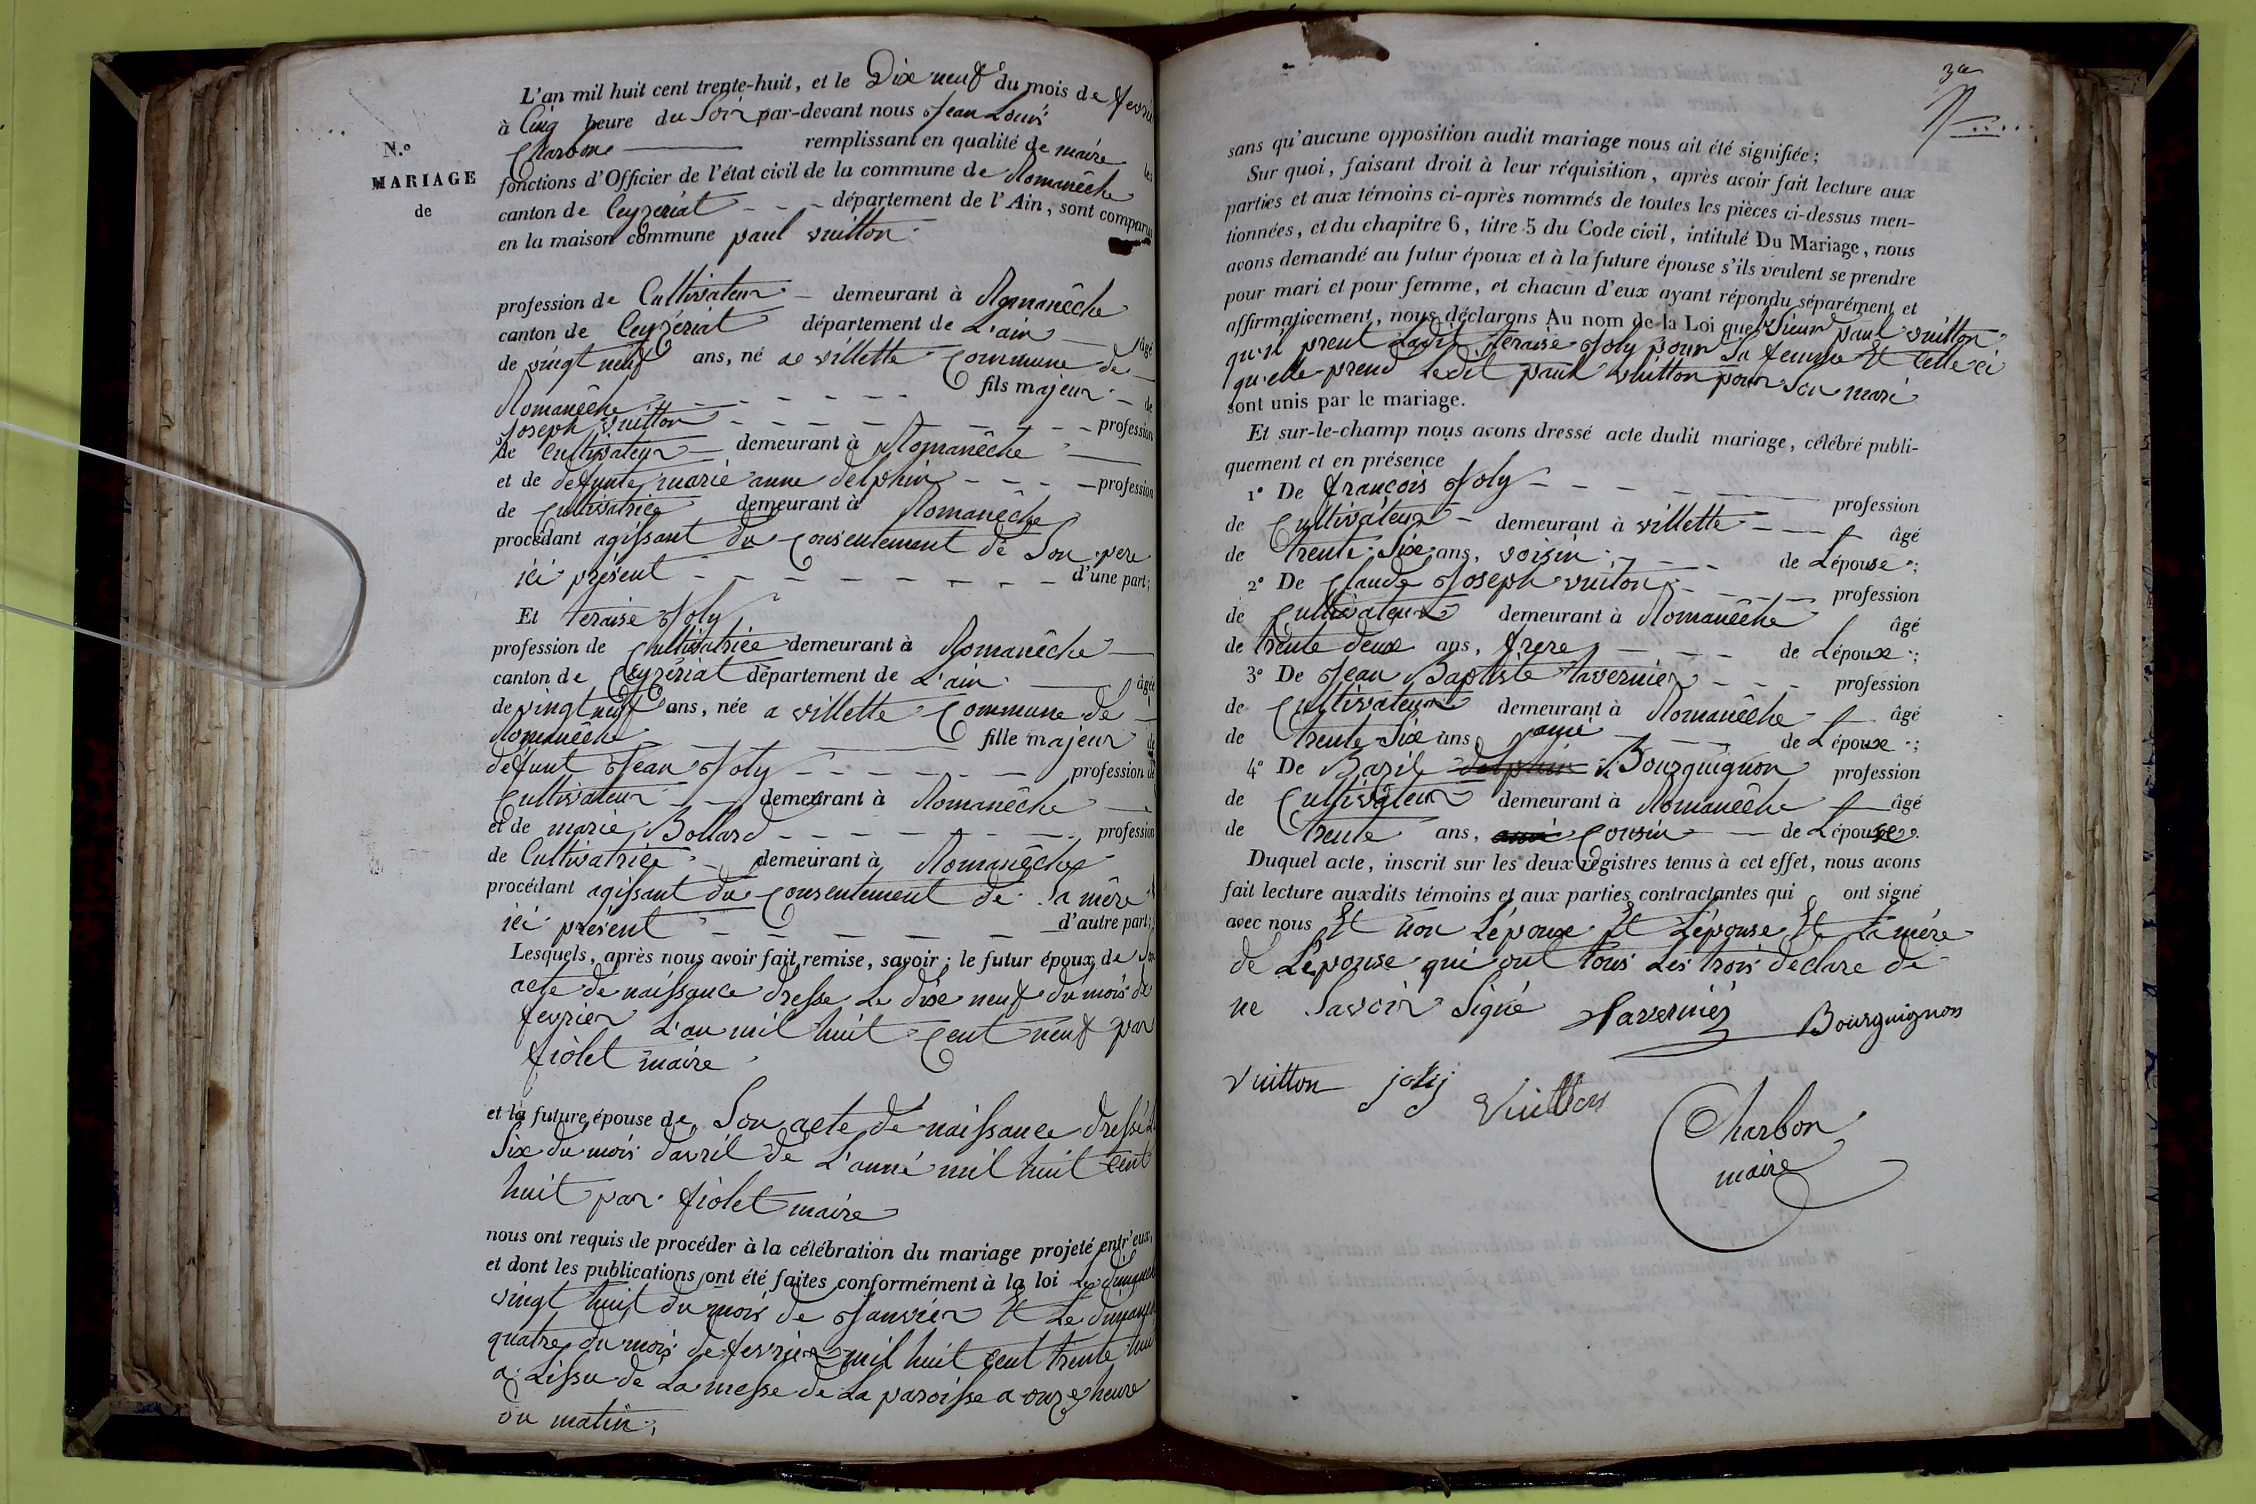 N.º
MARIAGE
de
L'an mil huit cent trente-huit, et le Dix neuf du mois de fevrier
à Cinq heure du Soir par-devant nous Jean Louis
Charbon remplissant en qualité de maire les
fonctions d'Officier de l'état civil de la commune de Romanêche
canton de Ceyzeriat - - - département de l'Ain, sont comparus
en la maison commune paul vuitton
profession de Cultivateur - demeurant à Romanêche
canton de Ceyzériat département de L'ain âgé
de vingt neuf ans, né a villette Commune de
Romanêche - - - - - - fils majeur - de
Joseph vuitton - - - - - - - - profession
de Cultivateur demeurant à Romanêche
et de defunte marie anne delphin - - - - profession
de Cultivatrice demeurant à Romanêche
procédant agissant du Consentement de Son pere
ici présent - - - - - - - - d'une part;
Et teraise Joly
profession de Cultivatrice demeurant à Romanêche
canton de Ceyzériat département de L'ain âgée
de vingt neuf ans, née a villette Commune de
Romanêche fille majeur de
défunt Jean Joly - - - - - - profession de
Cultivateur - - demeurant à Romanêche
et de marie Bollard - - - - - - - - profession
de Cultivatrice - demeurant à Romanêche
procédant agissant du Consentement de Sa mère
ici présent - - - - - - d'autre part;
Lesquels, après nous avoir fait remise, savoir; le futur époux de Son
acte de naissance dresse Le dixe neuf du mois de
fevrier L'an mil huit Cent neuf par
fiolet maire
et la future épouse de Son acte de naissance dressé Le
Six du mois d'avril de L'anné mil huit Cent
huit par fiolet maire
nous ont requis de procéder à la célébration du mariage projeté entr'eux,
et dont les publications ont été faites conformément à la loi Le dimanche
vingt huit du mois de Janvier Et Le dimanche
quatre du mois de fevrier mil huit Cent trente huit
a Lissu de La messe de La paroisse a onze heure
du matin;
sans qu'aucune opposition audit mariage nous ait été signifiée;
Sur quoi, faisant droit à leur réquisition, après avoir fait lecture aux
parties et aux témoins ci-après nommés de toutes les pièces ci-dessus men-
tionnées, et du chapitre 6, titre 5 du Code civil, intitulé Du Mariage, nous
avons demandé au futur époux et à la future épouse s'ils veulent se prendre
pour mari et pour femme, et chacun d'eux ayant répondu séparément et
affirmativement, nous déclarons Au nom de la Loi que Sieur paul vuitton
qu'il prent Ladit teraise Joly pour Sa femme Et Celle ci
qu'elle prend Ledit paul vuitton pour Son mari
sont unis par le mariage.
Et sur-le-champ nous avons dressé acte dudit mariage, célébré publi-
quement et en présence
1º De françois Joly - - - - - profession
de Cultivateur - demeurant à villette - - - âgé
de trente Six ans, voisin - - - de Lépouse;
2º De Claude Joseph vuiton - - - - profession
de Cultivateur demeurant à Romanêche âgé
de trente deux ans, frere - - - - de Lépoux;
3º De Jean Baptiste tavernier - - - profession
de Cultivateur demeurant à Romanêche - âgé
de trente Six ans amie - - de Lépoux;
4º De Bazil delphin Bourguignon profession
de Cultivateur demeurant à Romanêche âgé
de trente ans, ami Cousin - de Lépouse
Duquel acte, inscrit sur les deux registres tenus à cet effet, nous avons
fait lecture auxdits témoins et aux parties contractantes qui ont signé
avec nous Et non L'époux Et L'épouse Et La mére
de L'épouse qui ont tous Les trois declare de
ne Savoir Signé Taverniér Bourguignon
Vuitton joly Vuitton
Charbon
maire